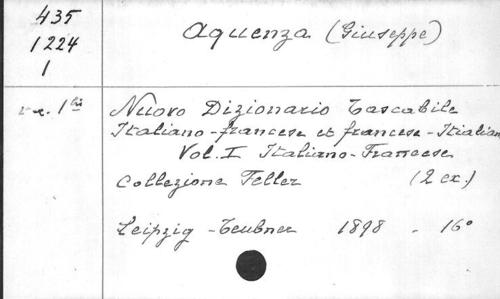 435
1224
1
Aquenza (Giuseppe)
Nuovo Dizionario Tascabile
Italiano-francese et francese-Italian
Vol. I Italiano-Francese
Collezione Feller (2 ex.)
Leipzig - Teubner 1898 - 16°